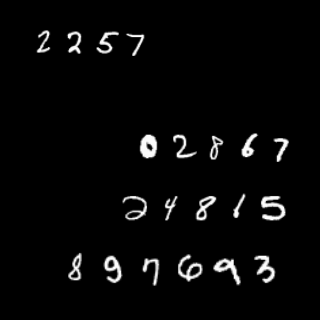 2257
02867
24815
897693